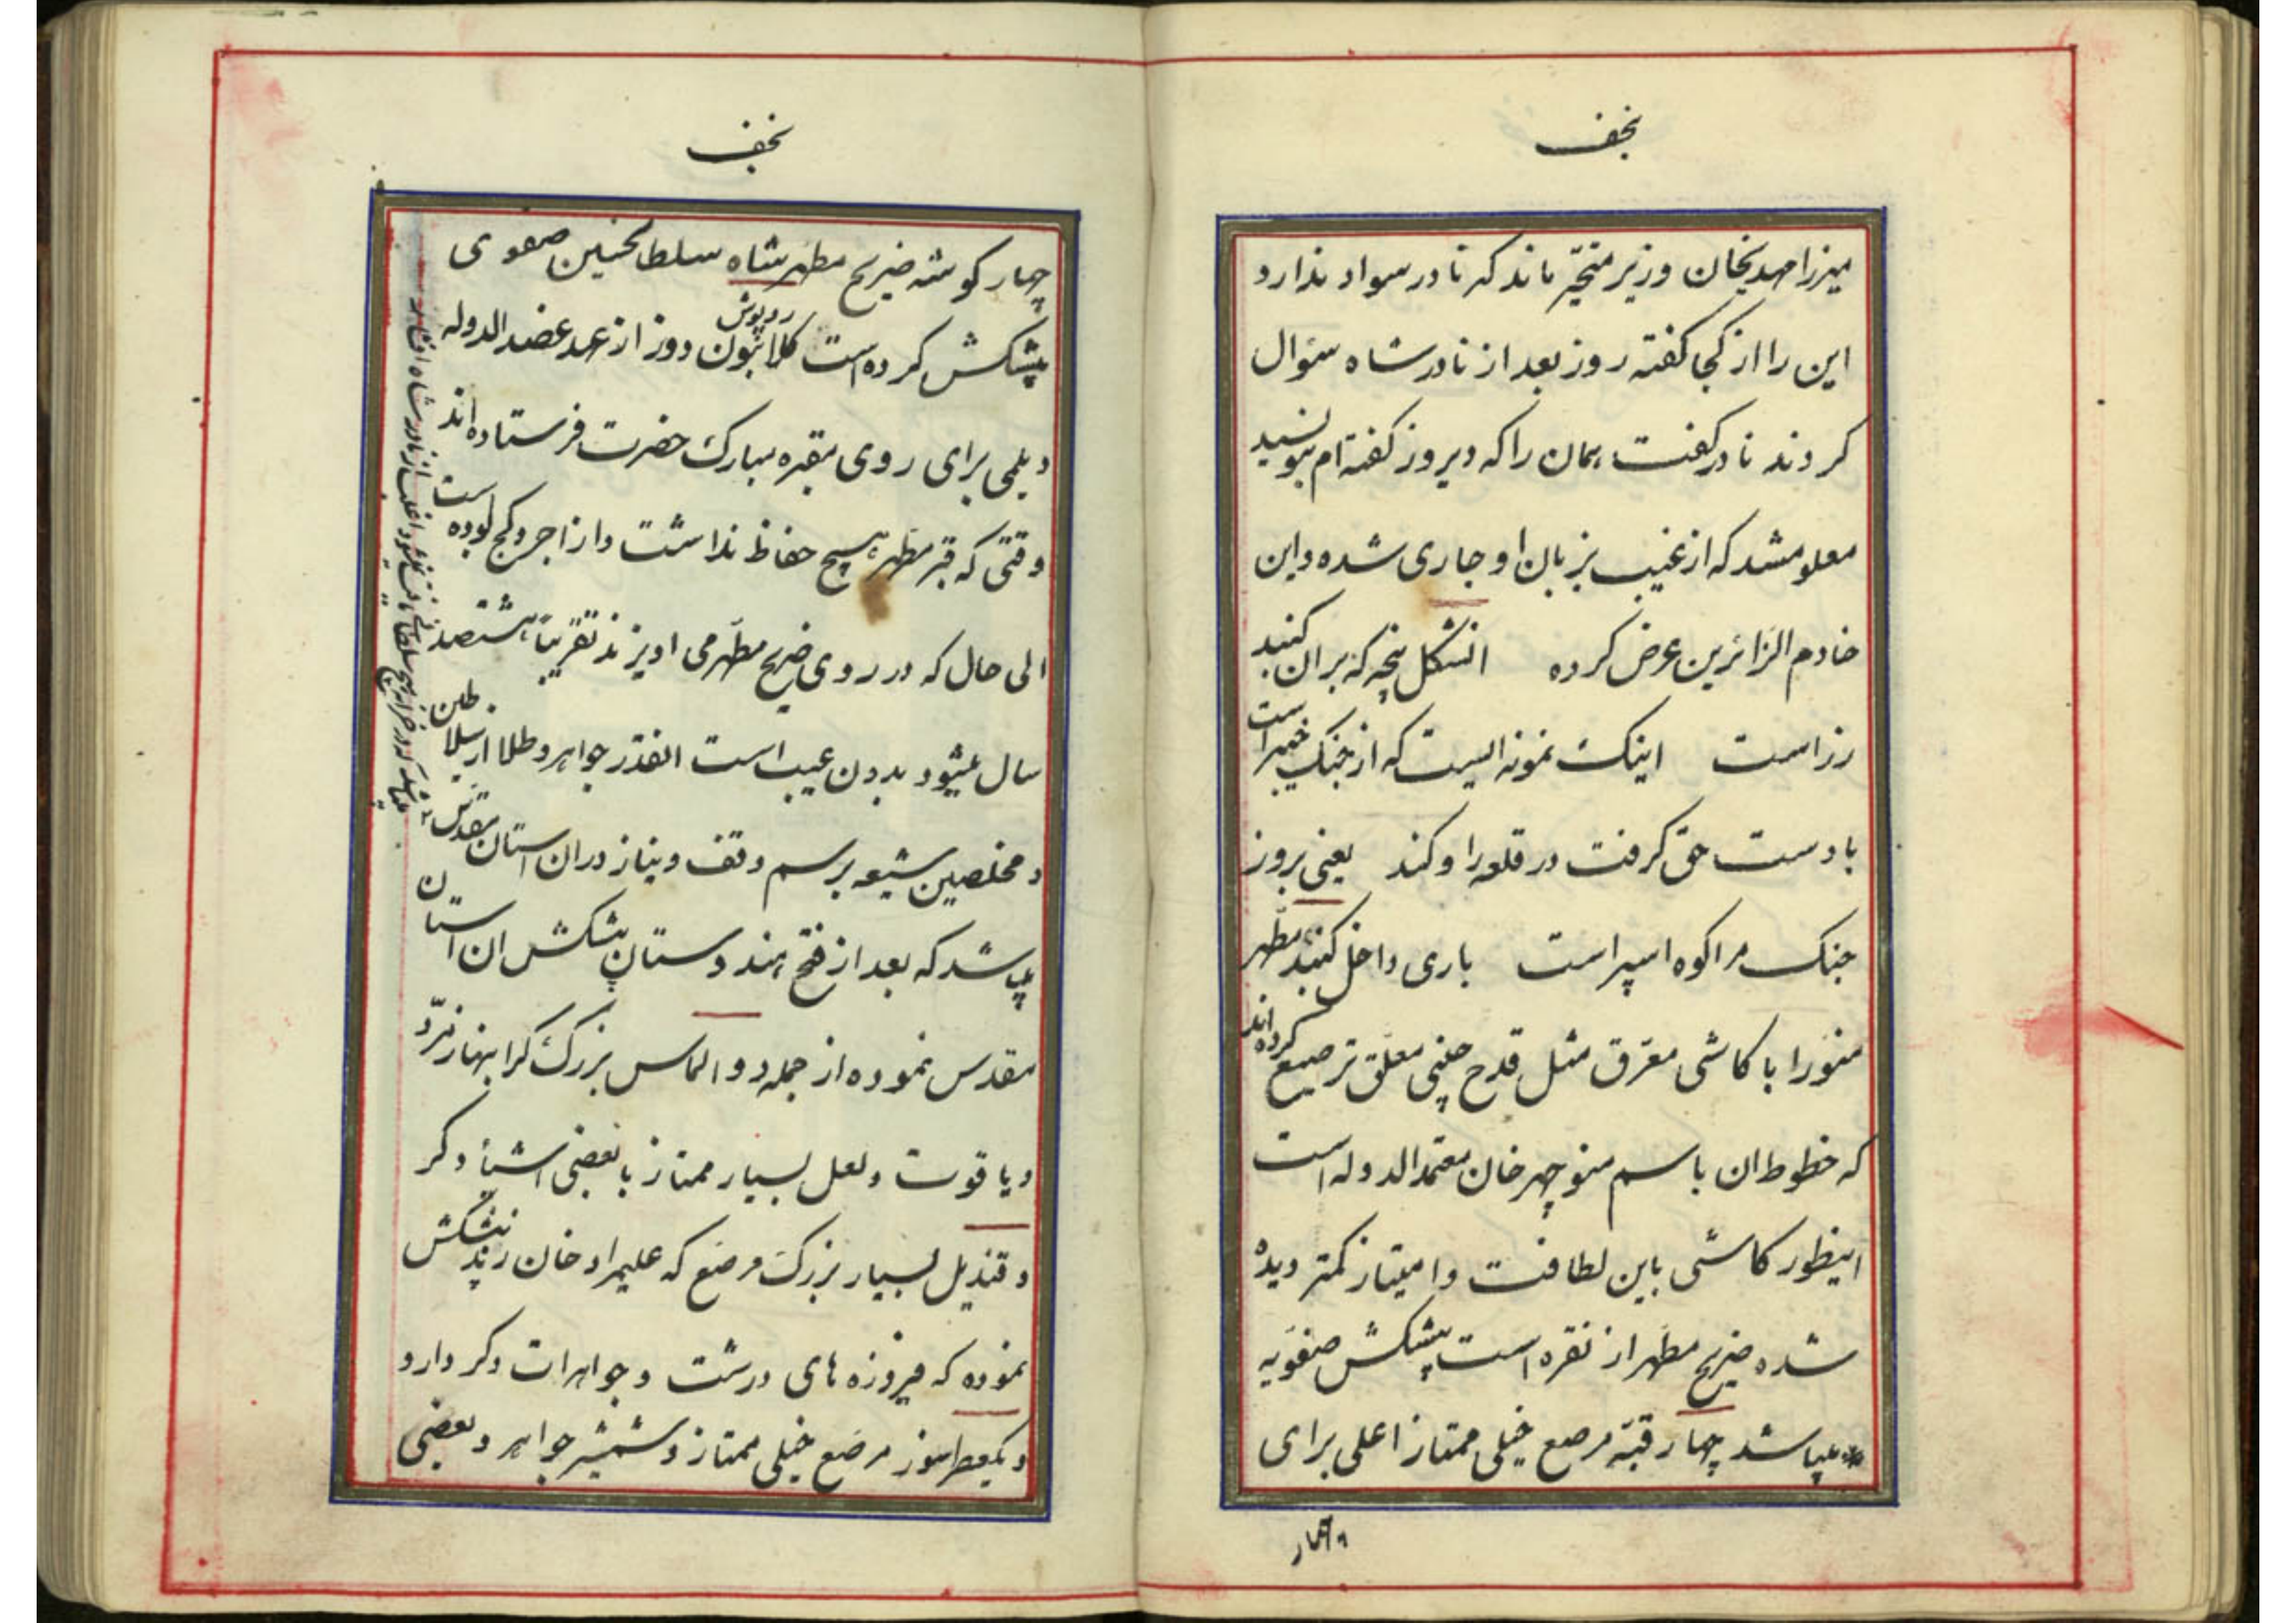 نجف
میرزا مهدیخان وزیر متحیّر ماند که نادر سواد ندارد
این را از کجا گفته روز بعد از نادرشاه سئوال
کردند نادر گفت همان را که دیروز گفته‌ام بنویسید
معلوم شد که از غیب بزبان او جاری شده و این
خادم الزائرین عرض کرده انشکل پنجه که بر ان کنبد
رز است اینک نمونه الیست که از جنک خیبر است
با دست حق گرفت در قلعه را و کند یعنی بروز
جنک مرا کوه اسپر است باری داخل کنبد مطهر
منور را با کاشی معرق مثل قدح چینی معلق ترصیع کرده‌اند
که خطوط ان باسم منوچهر خان معتمد الدوله است
اینطور کاشی باین لطافت و امتیاز کمتر دیده
شده ضریح مطهر از نقره است پیشکش صفویه
میباشد چهار قبّه مرصع خیلی ممتاز اعلی برای
چهار
نجف
چهار کوشه ضریح مطهر شاه سلطانحسین صفوی
پیشکش کرده است روپوش کلابتون دوز از عهد عضد الدوله
دیلمی برای روی مقبره مبارک حضرت فرستاده‌اند
وقتی که قبر مطهر هیچ حفاظ نداشت و از اجر و کج بوده است
الی حال که در روی ضریح مطهر می اویزند تقریباً هشتصد
سال میشود بدون عیب است انقدر جواهر و طلا از سلاطین
و مخلصین شیعه برسم وقف و نیاز در ان استان مقدس
میباشد که بعد از فتح هندوستان پیشکش ان استان
مقدس نموده از جمله دو الماس بزرک کرانبها زمرّد
و یاقوت و لعل بسیار ممتاز با بعضی اشیاء دکر
و قندیل بسیار بزرک مرصع که علیمراد خان زند پیشکش
نموده که فیروزه های درشت و جواهرات دکر دارد
و یکعطرسوز مرصع خیلی ممتاز و شمشیر جواهر و بعضی